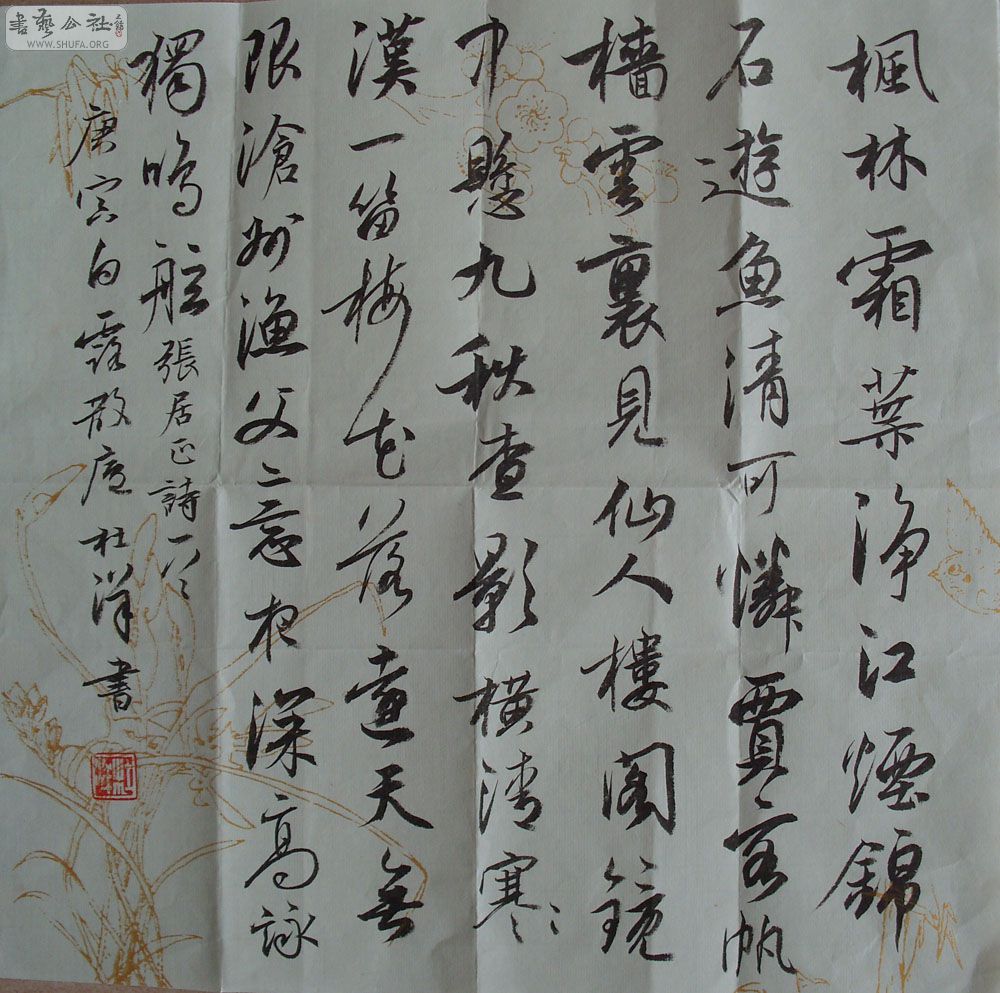 書藝公社
WWW.SHUFA.ORG
楓林霜葉淨江煙錦
石遊魚清可憐賈客帆
檣雲裏見仙人樓閣鏡
中懸九秋查影橫清寒
漢一笛梅花落遠天無
限滄州漁父意夜深高詠
獨鳴舷張居正詩一首
庚寅白露散廬杜洋書